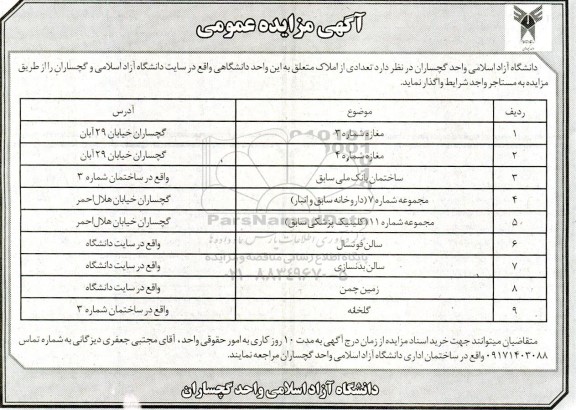 آگهی مزایده عمومی
دانشگاه آزاد اسلامی واحد گچساران در نظر دارد تعدادی از املاک متعلق به این واحد دانشگاهی واقع در سایت دانشگاه آزاد اسلامی و گچساران را از طریق
مزایده به مستاجر واجد شرایط واگذار نماید.
ردیف موضوع آدرس
۱ مغازه شماره ۳ گچساران خیابان ۲۹ آبان
۲ مغازه شماره ۴ گچساران خیابان ۲۹ آبان
۳ ساختمان بانک ملی سابق واقع در ساختمان شماره ۳
۴ مجموعه شماره ۷ (داروخانه سابق و انبار) گچساران خیابان هلال احمر
۵ مجموعه شماره ۱۱ (کلینیک پزشکی سابق) گچساران خیابان هلال احمر
۶ سالن فوتسال واقع در سایت دانشگاه
۷ سالن بدنسازی واقع در سایت دانشگاه
۸ زمین چمن واقع در سایت دانشگاه
۹ گلخانه واقع در ساختمان شماره ۳
متقاضیان میتوانند جهت خرید اسناد مزایده از زمان درج آگهی به مدت ۱۰ روز کاری به امور حقوقی واحد، آقای مجتبی جعفری دیزگانی به شماره تماس
۰۹۱۷۱۴۰۳۰۸۸ واقع در ساختمان اداری دانشگاه آزاد اسلامی واحد گچساران مراجعه نمایند.
دانشگاه آزاد اسلامی واحد گچساران
پایگاه اطلاع رسانی مناقصه و مزایده
۰۲۱-۸۸۳۴۹۶۷۰-۵